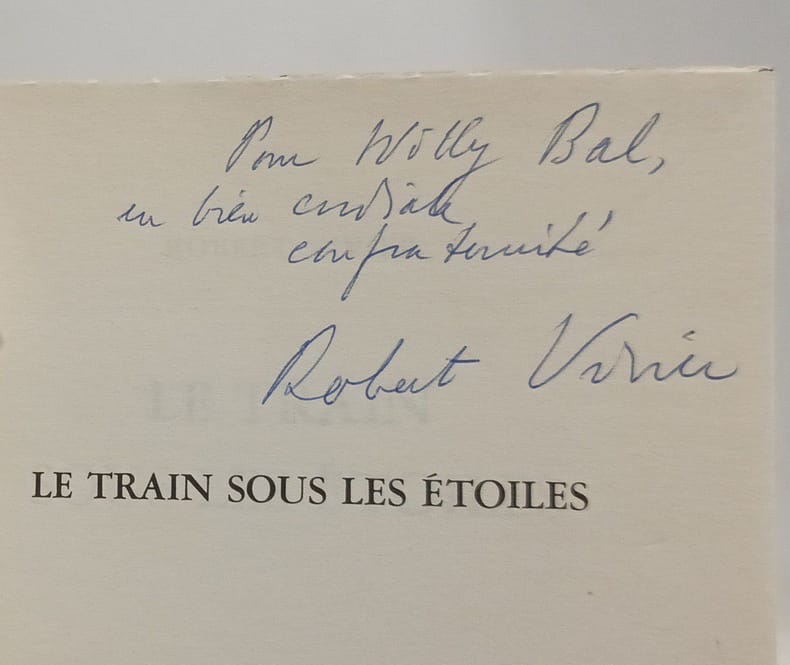 Pour Willy Bal,
en bien cordiale
confraternité
Robert Vivier
LE TRAIN SOUS LES ÉTOILES